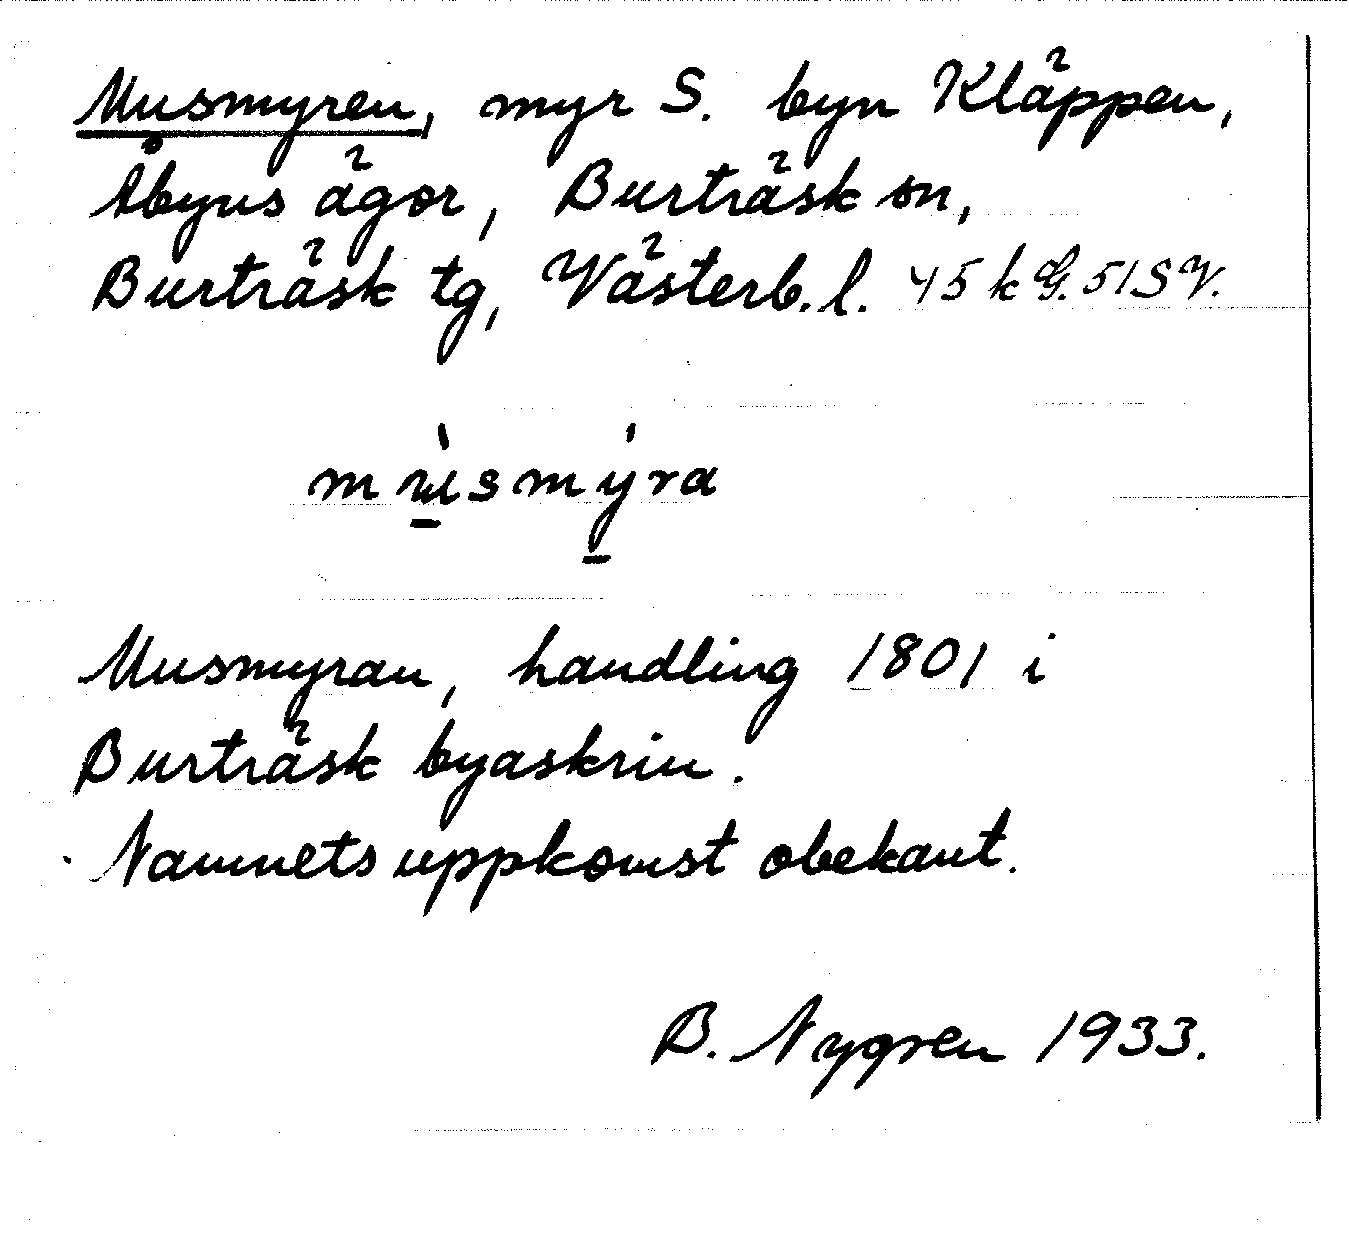 Musmyren, myr S. byn Kläppen,
Åbyns ägor, Burträsk sn,
Burträsk tg, Västerb. l. 45 k G. 51 S V.
mùsmýra
Musmyran, handling 1801 i
Burträsk byaskrin.
Namnets uppkomst obekant.
B. Nygren 1933.